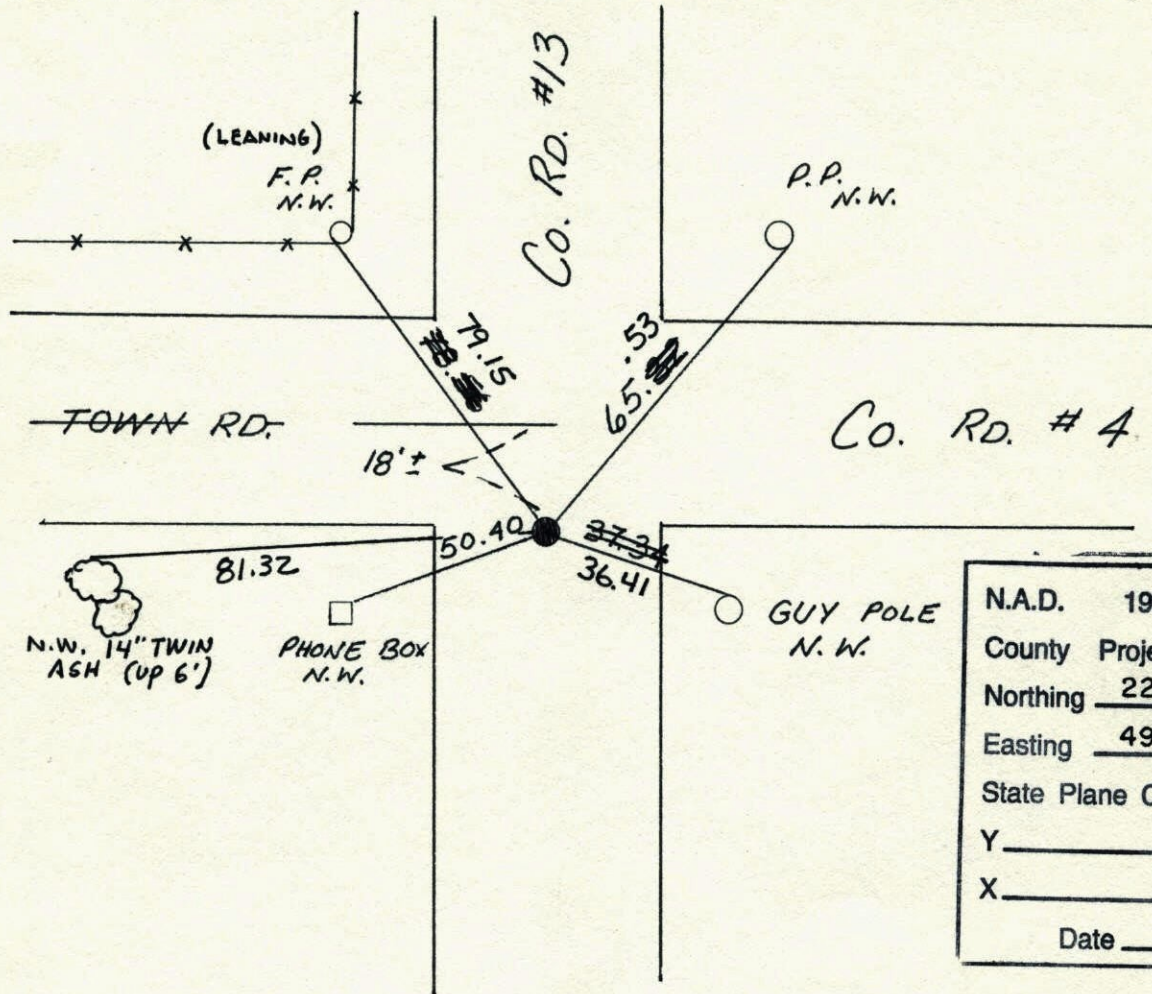 Co. RD. #13
(LEANING)
F.P.
N.W.
P.P.
N.W.
79.15
.53
65.
TOWN RD.
18'±
Co. RD. # 4
50.40
37.34
36.41
81.32
N.W. 14" TWIN
ASH (UP 6')
PHONE BOX
N.W.
GUY POLE
N.W.
N.A.D. 19
County Proje
Northing 22
Easting 49
State Plane C
Y
X
Date